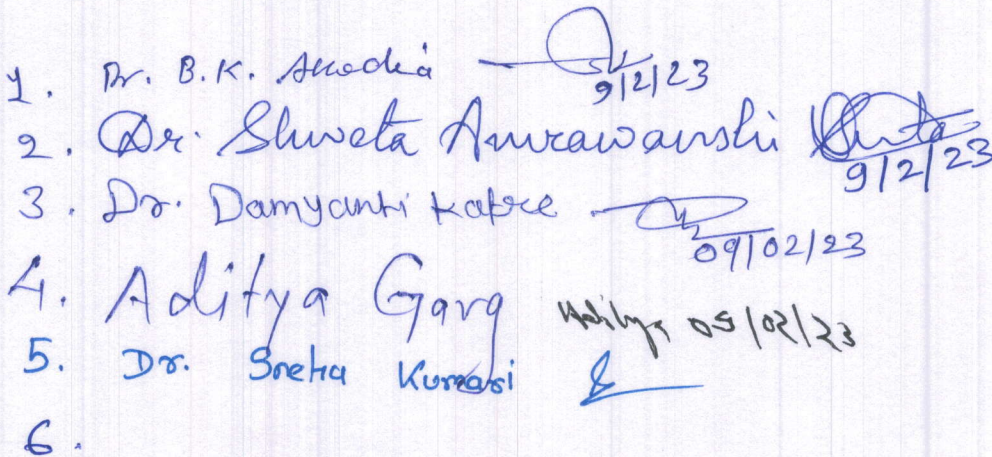 1. Dr. B.K. 9/2/23
2. Dr. Shweta Anurawanshi 9/2/23
3. Dr. Damyanti Kafre 09/02/23
4. Aditya Garg Aditya 09/02/23
5. Dr. Sneha Kumari
6.